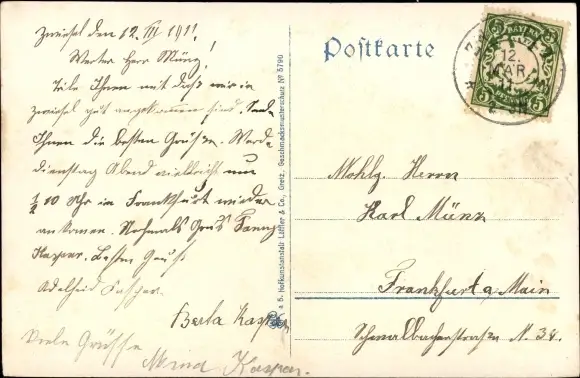 Zwiesel den 12. III 1911.
Werter Herr Münz!
Teile Ihnen mit daß wir in
Zwiesel gut angekommen sind. Sende
Ihnen die besten Grüße. Werde
Dienstag Abend vielleicht um
1/2 10 Uhr in Frankfurt wieder
ankommen. Nochmals Grus Fanny
Kasper. Besten Gruß
Adelheid Kasper
Berta Kasper
Viele Grüsse
Mina Kasper.
a 6. Hofkunstanstalt Löffler & Co., Greiz. Geschmacksmusterschutz Nº 5790
Postkarte
BAYERN
5 5
12.
MAR
Wohlg. Herrn
Karl Münz
Frankfurt a Main
Schwalbacherstraße N. 34.